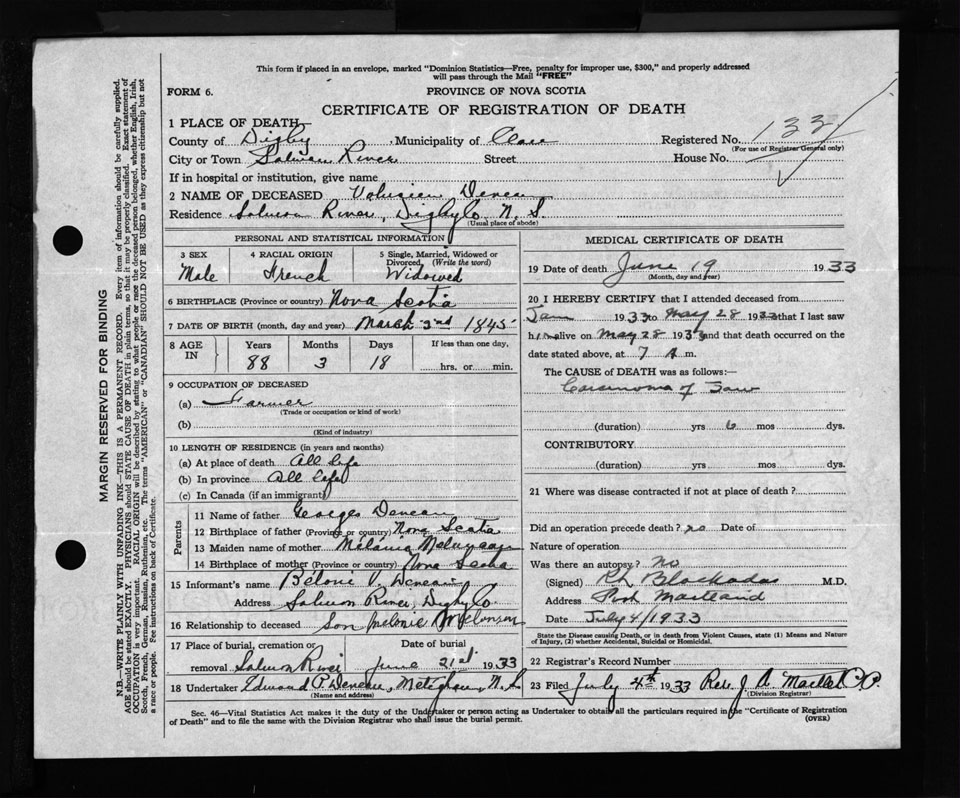 This form if placed in an envelope, marked "Dominion Statistics—Free, penalty for improper use, $300," and properly addressed
will pass through the Mail "FREE"
FORM 6.
PROVINCE OF NOVA SCOTIA
CERTIFICATE OF REGISTRATION OF DEATH
1 PLACE OF DEATH—
County of Digby, Municipality of Clare Registered No. 133
(For use of Registrar General only)
City or Town Salmon River Street House No.
If in hospital or institution, give name
2 NAME OF DECEASED
Residence Salmon River, Digby Co. N. S.
(Usual place of abode)
PERSONAL AND STATISTICAL INFORMATION
3 SEX 4 RACIAL ORIGIN 5 Single, Married, Widowed or
Divorced, (Write the word)
Male French Widowed
6 BIRTHPLACE (Province or country) Nova Scotia
7 DATE OF BIRTH (month, day and year) March 2nd 1845
8 AGE IN Years Months Days If less than one day,
88 3 18 hrs. or min.
9 OCCUPATION OF DECEASED
(a) Farmer
(Trade or occupation or kind of work)
(b)
(Kind of industry)
10 LENGTH OF RESIDENCE (in years and months)
(a) At place of death All life
(b) In province All life
(c) In Canada (if an immigrant)
Parents
11 Name of father Georges
12 Birthplace of father (Province or country) Nova Scotia
13 Maiden name of mother
14 Birthplace of mother (Province or country) Nova Scotia
15 Informant's name Béloni V.
Address Salmon River, Digby Co.
16 Relationship to deceased Son
17 Place of burial, cremation or Date of burial
removal Salmon River June 21st 1933
18 Undertaker Edward P. Deveau, Meteghan, N.S.
(Name and address)
MEDICAL CERTIFICATE OF DEATH
19 Date of death June 19 1933
(Month, day and year)
20 I HEREBY CERTIFY that I attended deceased from
Jan 1933 to May 28 1933 that I last saw
him alive on May 28 1933 and that death occurred on the
date stated above, at 7 A m.
The CAUSE of DEATH was as follows:—
Carcinoma of Jaw
(duration) yrs 6 mos dys.
CONTRIBUTORY
(duration) yrs mos dys.
21 Where was disease contracted if not at place of death?
Did an operation precede death? no Date of
Nature of operation
Was there an autopsy? No
(Signed) M.D.
Address Port Maitland
Date July 4/1933
State the Disease causing Death, or in death from Violent Causes, state (1) Means and Nature
of Injury, (2) whether Accidental, Suicidal or Homicidal.
22 Registrar's Record Number
23 Filed July 4th 1933 Rev. J. A.
(Division Registrar)
Sec. 46—Vital Statistics Act makes it the duty of the Undertaker or person acting as Undertaker to obtain all the particulars required in the "Certificate of Registration
of Death" and to file the same with the Division Registrar who shall issue the burial permit.
(OVER)
MARGIN RESERVED FOR BINDING
N.B.—WRITE PLAINLY WITH UNFADING INK—THIS IS A PERMANENT RECORD. Every item of information should be carefully supplied.
AGE should be stated EXACTLY. PHYSICIANS should STATE CAUSE OF DEATH in plain terms, so that it may be properly classified. Exact statement of
OCCUPATION is very important. RACIAL ORIGIN will be described by stating to what people or race the deceased person belonged, whether English, Irish,
Scotch, French, German, Russian, Ruthenian, etc. The terms "AMERICAN" or "CANADIAN" SHOULD NOT BE USED as they express citizenship but not
a race or people. See instructions on back of Certificate.